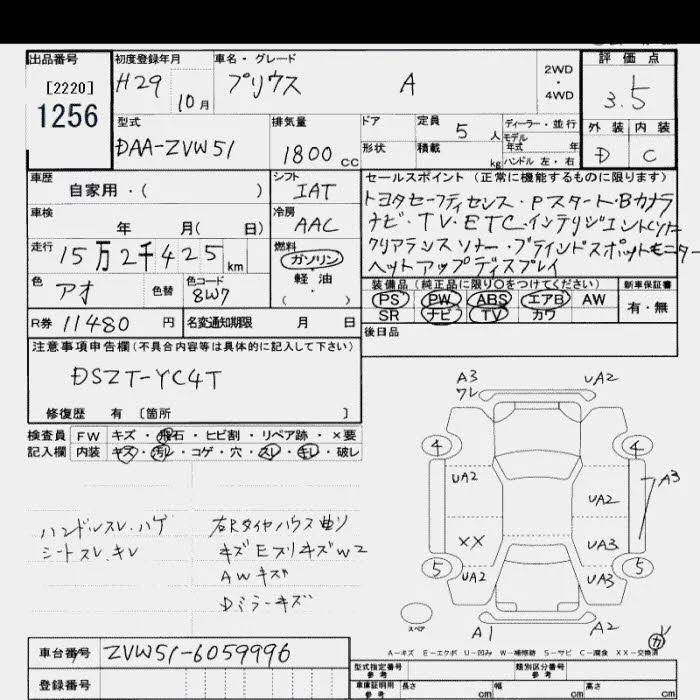 出品番号
[2220]
1256
初度登録年月
H29
10月
車名・グレード
プリウス A
2WD
・
4WD
評価点
3.5
外装 内装
D C
型式
DAA-ZVW51
排気量
1800 cc
ドア
形状
定員 5 人
積載 kg
ディーラー・並行
モデル
年式 年
ハンドル 左・右
車歴
自家用・( )
シフト
IAT
車検
年 月( 日)
冷房
AAC
走行
15万2千425 km
燃料
ガソリン
軽油
( )
色
アオ
色替
色コード
8W7
R券 11480 円
名変通知期限 月 日
セールスポイント (正常に機能するものに限ります)
トヨタセーフティセンス・Pスタート・Bカメラ
ナビ・TV・ETC・インテリジェント
クリアランスソナー・ブラインドスポットモニター
ヘットアップディスプレイ
装備品(純正品に限り○をつけてください)
PS PW ABS エアB AW
SR ナビ TV カワ
新車保証書
有・無
後日品
注意事項申告欄(不具合内容等は具体的に記入して下さい)
DSZT-YC4T
修復歴 有 〔箇所 〕
検査員
記入欄
FW キズ・飛石・ヒビ割・リペア跡・×要
内装 キズ・汚レ・コゲ・穴・スレ・キレ・破レ
ハンドルスレ、ハゲ
シートスレ、キレ
右Rタイヤハウス曲リ
キズEスリキズW2
AWキズ
Dミラーキズ
A3
ワレ
UA2
4
4
UA2
UA2
A3
XX
UA3
5
5
UA2
UA3
スペア
A1
A2
A-キズ E-エクボ U-凹み W-補修跡 S-サビ C-腐食 XX-交換済
車台番号 ZVW51-6059996
登録番号
型式指定番号
参考
類別区分番号
参考
車庫証明用
参考
長さ cm
幅 cm
高さ cm